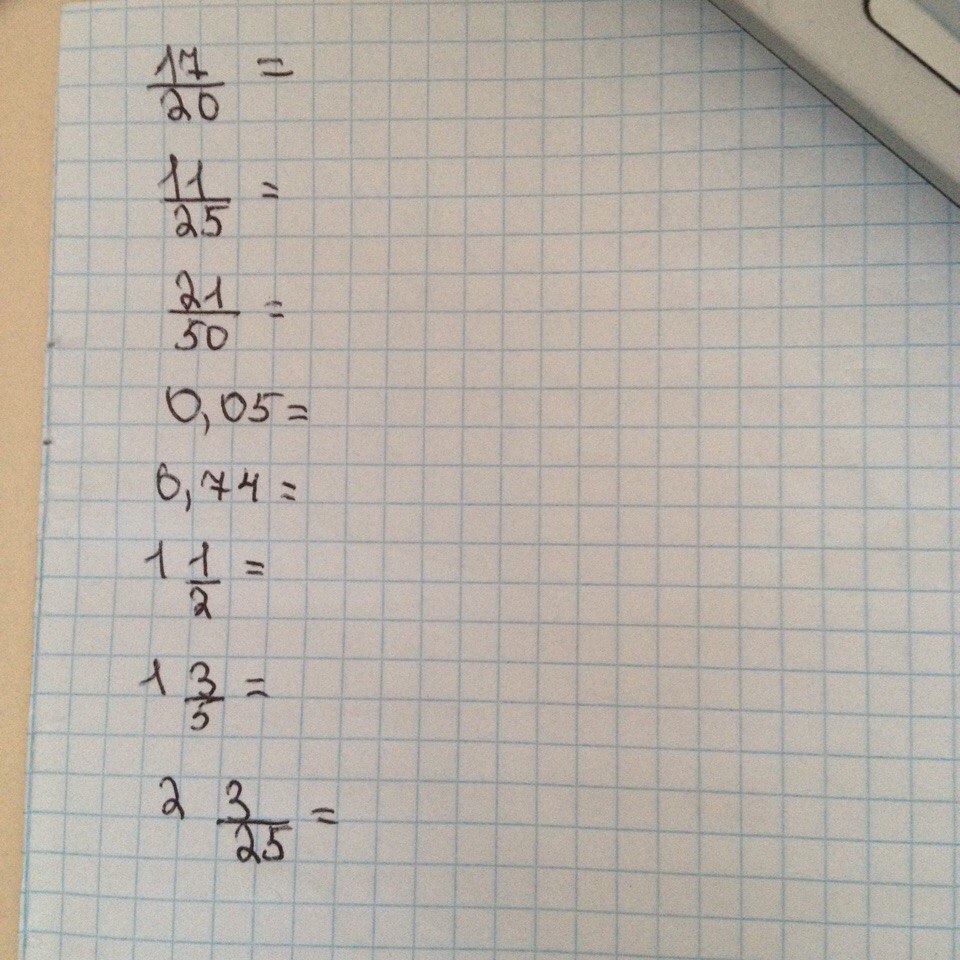 17/20 =
11/25 =
21/50 =
0,05=
0,74=
1 1/2 =
1 3/5 =
2 3/25 =